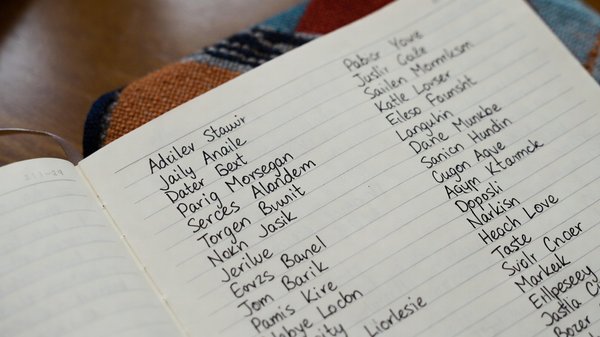 Adulev Stauir
Jaily Anaile
Dater Bext
Parig Morsegan
Serces Alandem
Torgen Buwit
Nokn Jasik
Jerilwe
Eorzs Banel
Jom Barik
Pamis Kire
Locon
Liorlesie
Pabor Yove
Justir Gaile
Sailen Mornrksm
Katle Lorser
Eileso Founsht
Languhin
Darie Munkbe
Sanicn Hundin
Cugon Aqve
Agyn Ktanmck
Doposli
Narkisn
Heach Love
Taste
Svolr Cnaer
Markeuk
Erllpeseey
Jastla
Bozer